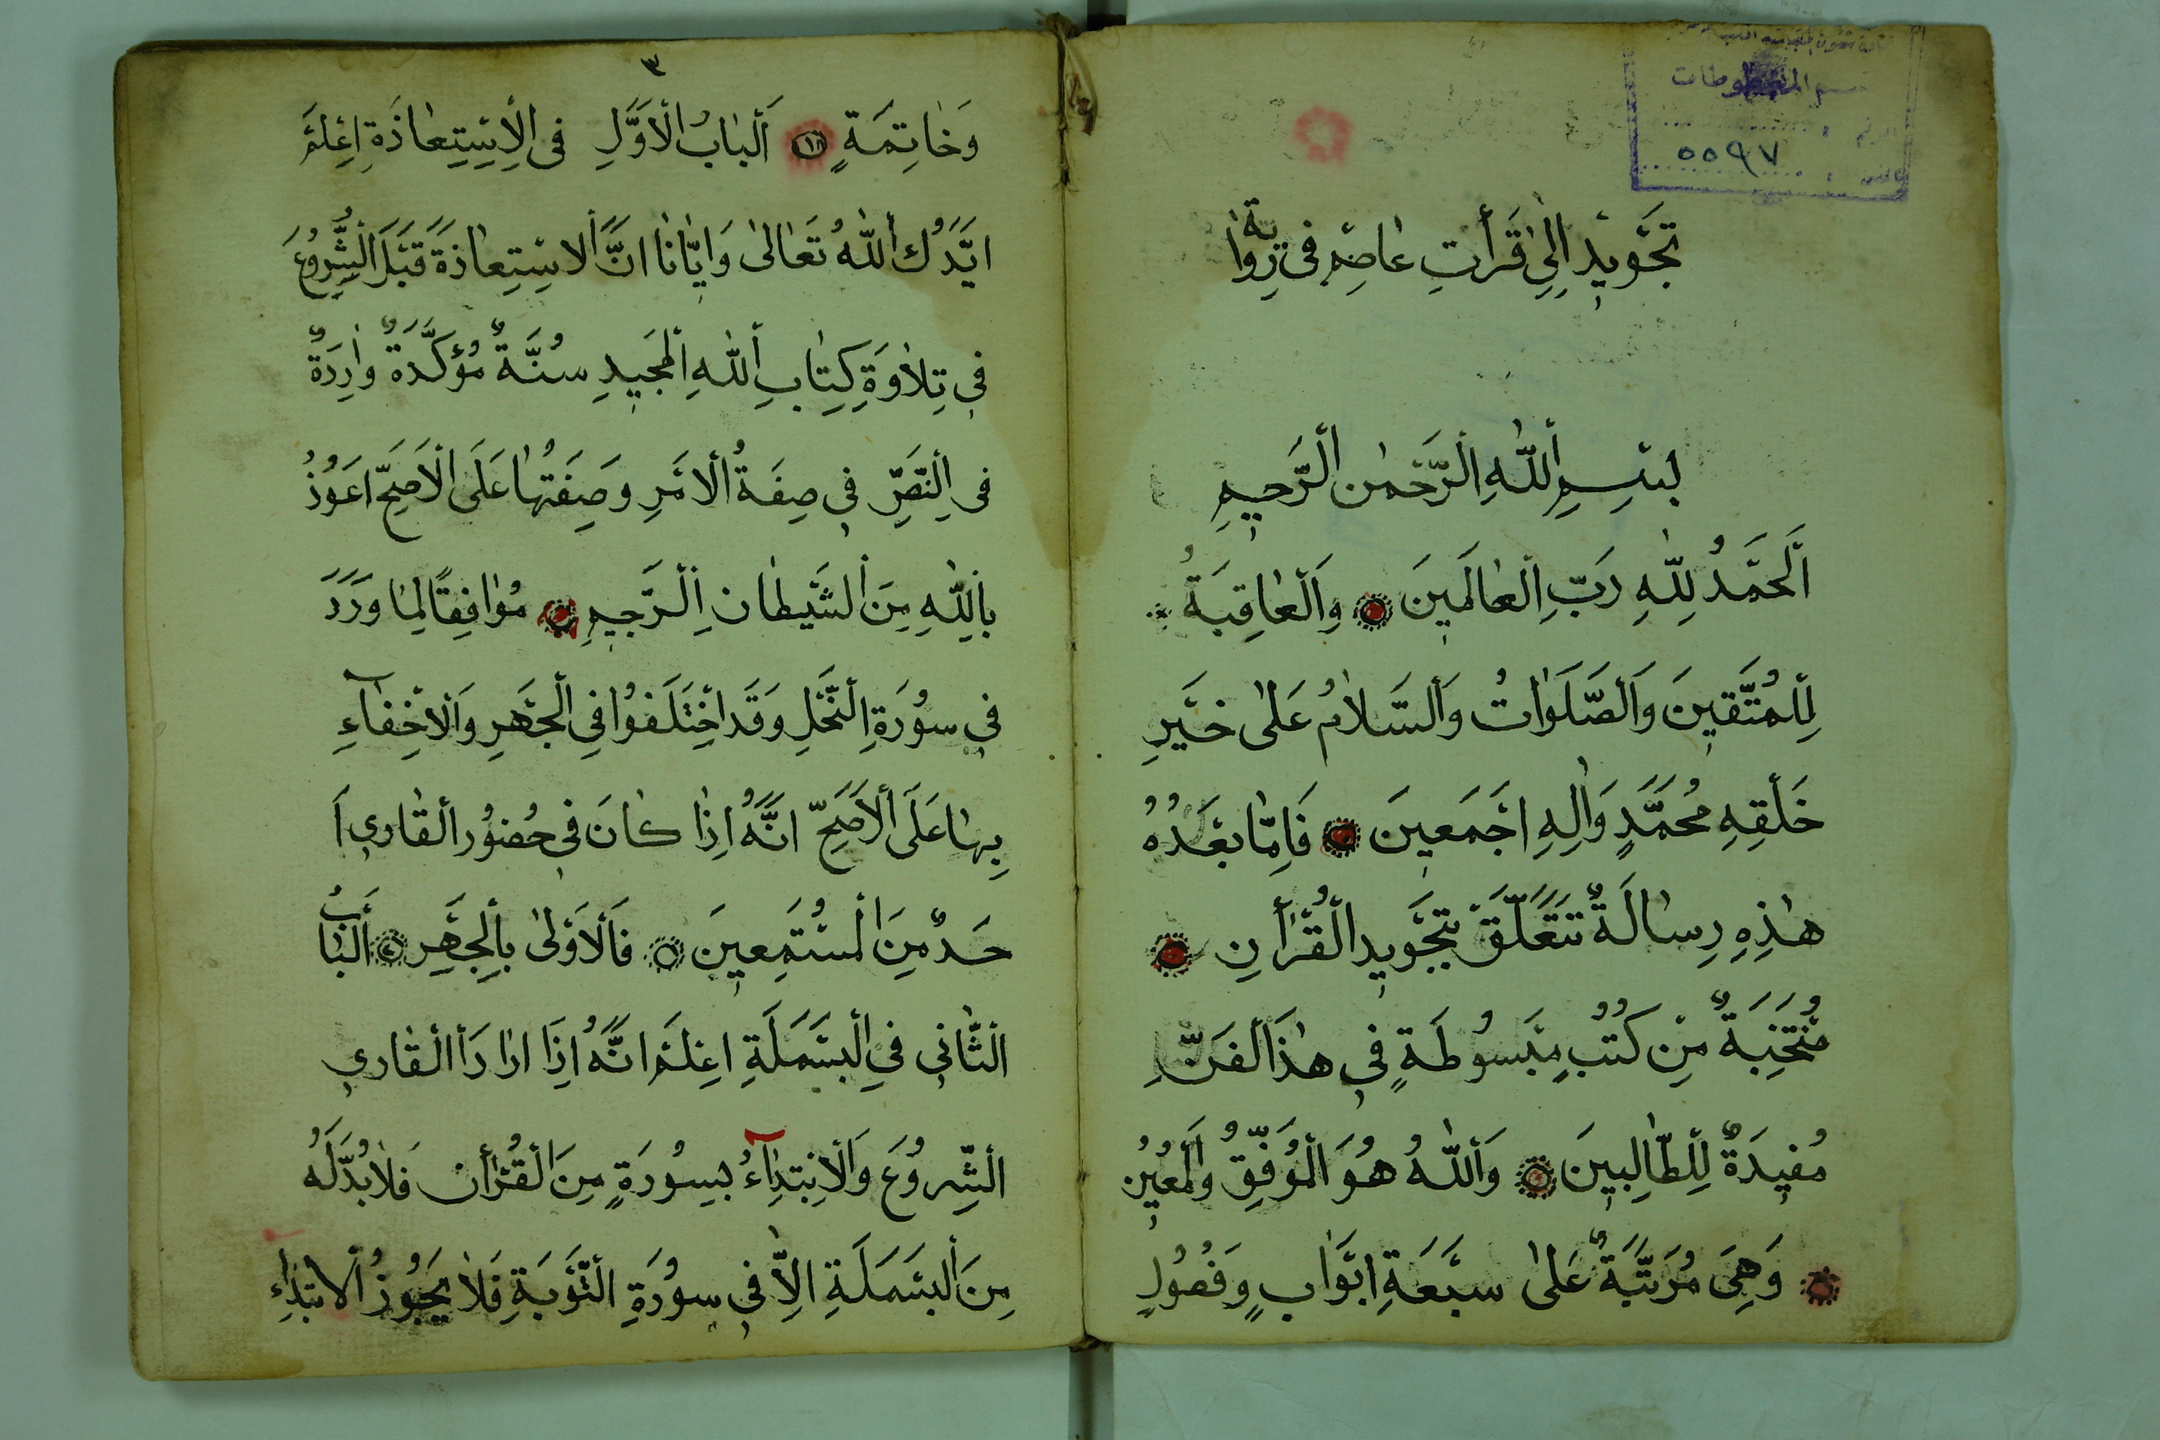 قسم المخطوطات
٥٥٩٧
تَجْوِيدِ اِلٰى قَرَأتِ عَاصِمْ فِى رِوَايَة
بِسْمِ اللّٰهِ الرَّحْمٰنِ الرَّحِيمِ
اَلْحَمْدُ لِلّٰهِ رَبِّ الْعَالَمِينَ وَالْعَاقِبَةُ
لِلْمُتَّقِينَ وَالصَّلَوَاتُ وَالسَّلَامُ عَلٰى خَيْرِ
خَلْقِهِ مُحَمَّدٍ وَاٰلِهِ اَجْمَعِينَ فَاِمَّا بَعْدُهُ
هٰذِهِ رِسَالَةٌ تَتَعَلَّقُ بِتَجْوِيدِ الْقُرْأنِ
مُنْتَخِبَةٌ مِنْ كُتُبٍ مَبْسُوطَةٍ فِي هٰذَ الْفَنِّ
مُفِيدَةٌ لِلطَّالِبِينَ وَاللّٰهُ هُوَ الْمُوَفِّقُ وَالْمُعِينُ
وَهِيَ مُرَتَّبَةٌ عَلٰى سَبْعَةِ اَبْوَابٍ وَفُصُولٍ
٣
وَخَاتِمَةٍ اَلْبَابُ الْاَوَّلِ فِى الْاِسْتِعَاذَةِ اِعْلَمْ
اَيَّدَكَ اللّٰهُ تَعَالٰى وَاِيَّانَا انَّ الْاسْتِعَاذَةَ قَبْلَ الشُّرُوعِ
فِي تِلَاوَةِ كِتَابِ اللّٰهِ الْمَجِيدِ سُنَّةٌ مُؤَكَّدَةٌ وَارِدَةٌ
فِى النَّصِّ فِي صِفَةُ الْامْرِ وَصِفَتُهَا عَلَى الْاَصَحِّ اَعُوذُ
بِاللّٰهِ مِنَ الشَّيْطَانِ الرَّجِيمِ مُوَافِقًا لِمَا وَرَدَ
فِي سُورَةِ النَّحْلِ وَقَدْ اخْتَلَفُوا فِي الْجَهْرِ وَالْاِخْفَاءِ
بِهَا عَلَى الْاَصَحِّ انَّهُ اِذَا كَانَ فِي حُضُورِ الْقَارِي اَ
حَدٌ مِنَ الْمُسْتَمِعِينَ فَالْاَوْلٰى بِالْجَهْرِ اَلْبَابُ
الثَّانِي فِي الْبَسْمَلَةِ اعْلَمْ انَّهُ اِذَا ارَادَ الْقَارِي
الشُّرُوعَ وَالْاِبْتِدَاءُ بِسُورَةٍ مِنَ الْقُرْأنْ فَلَا بُدَّ لَهُ
مِنَ الْبَسْمَلَةِ الَّا فِي سُورَةِ التَّوْبَةِ فَلَا يَجُوزُ الْابْتِدَاءِ